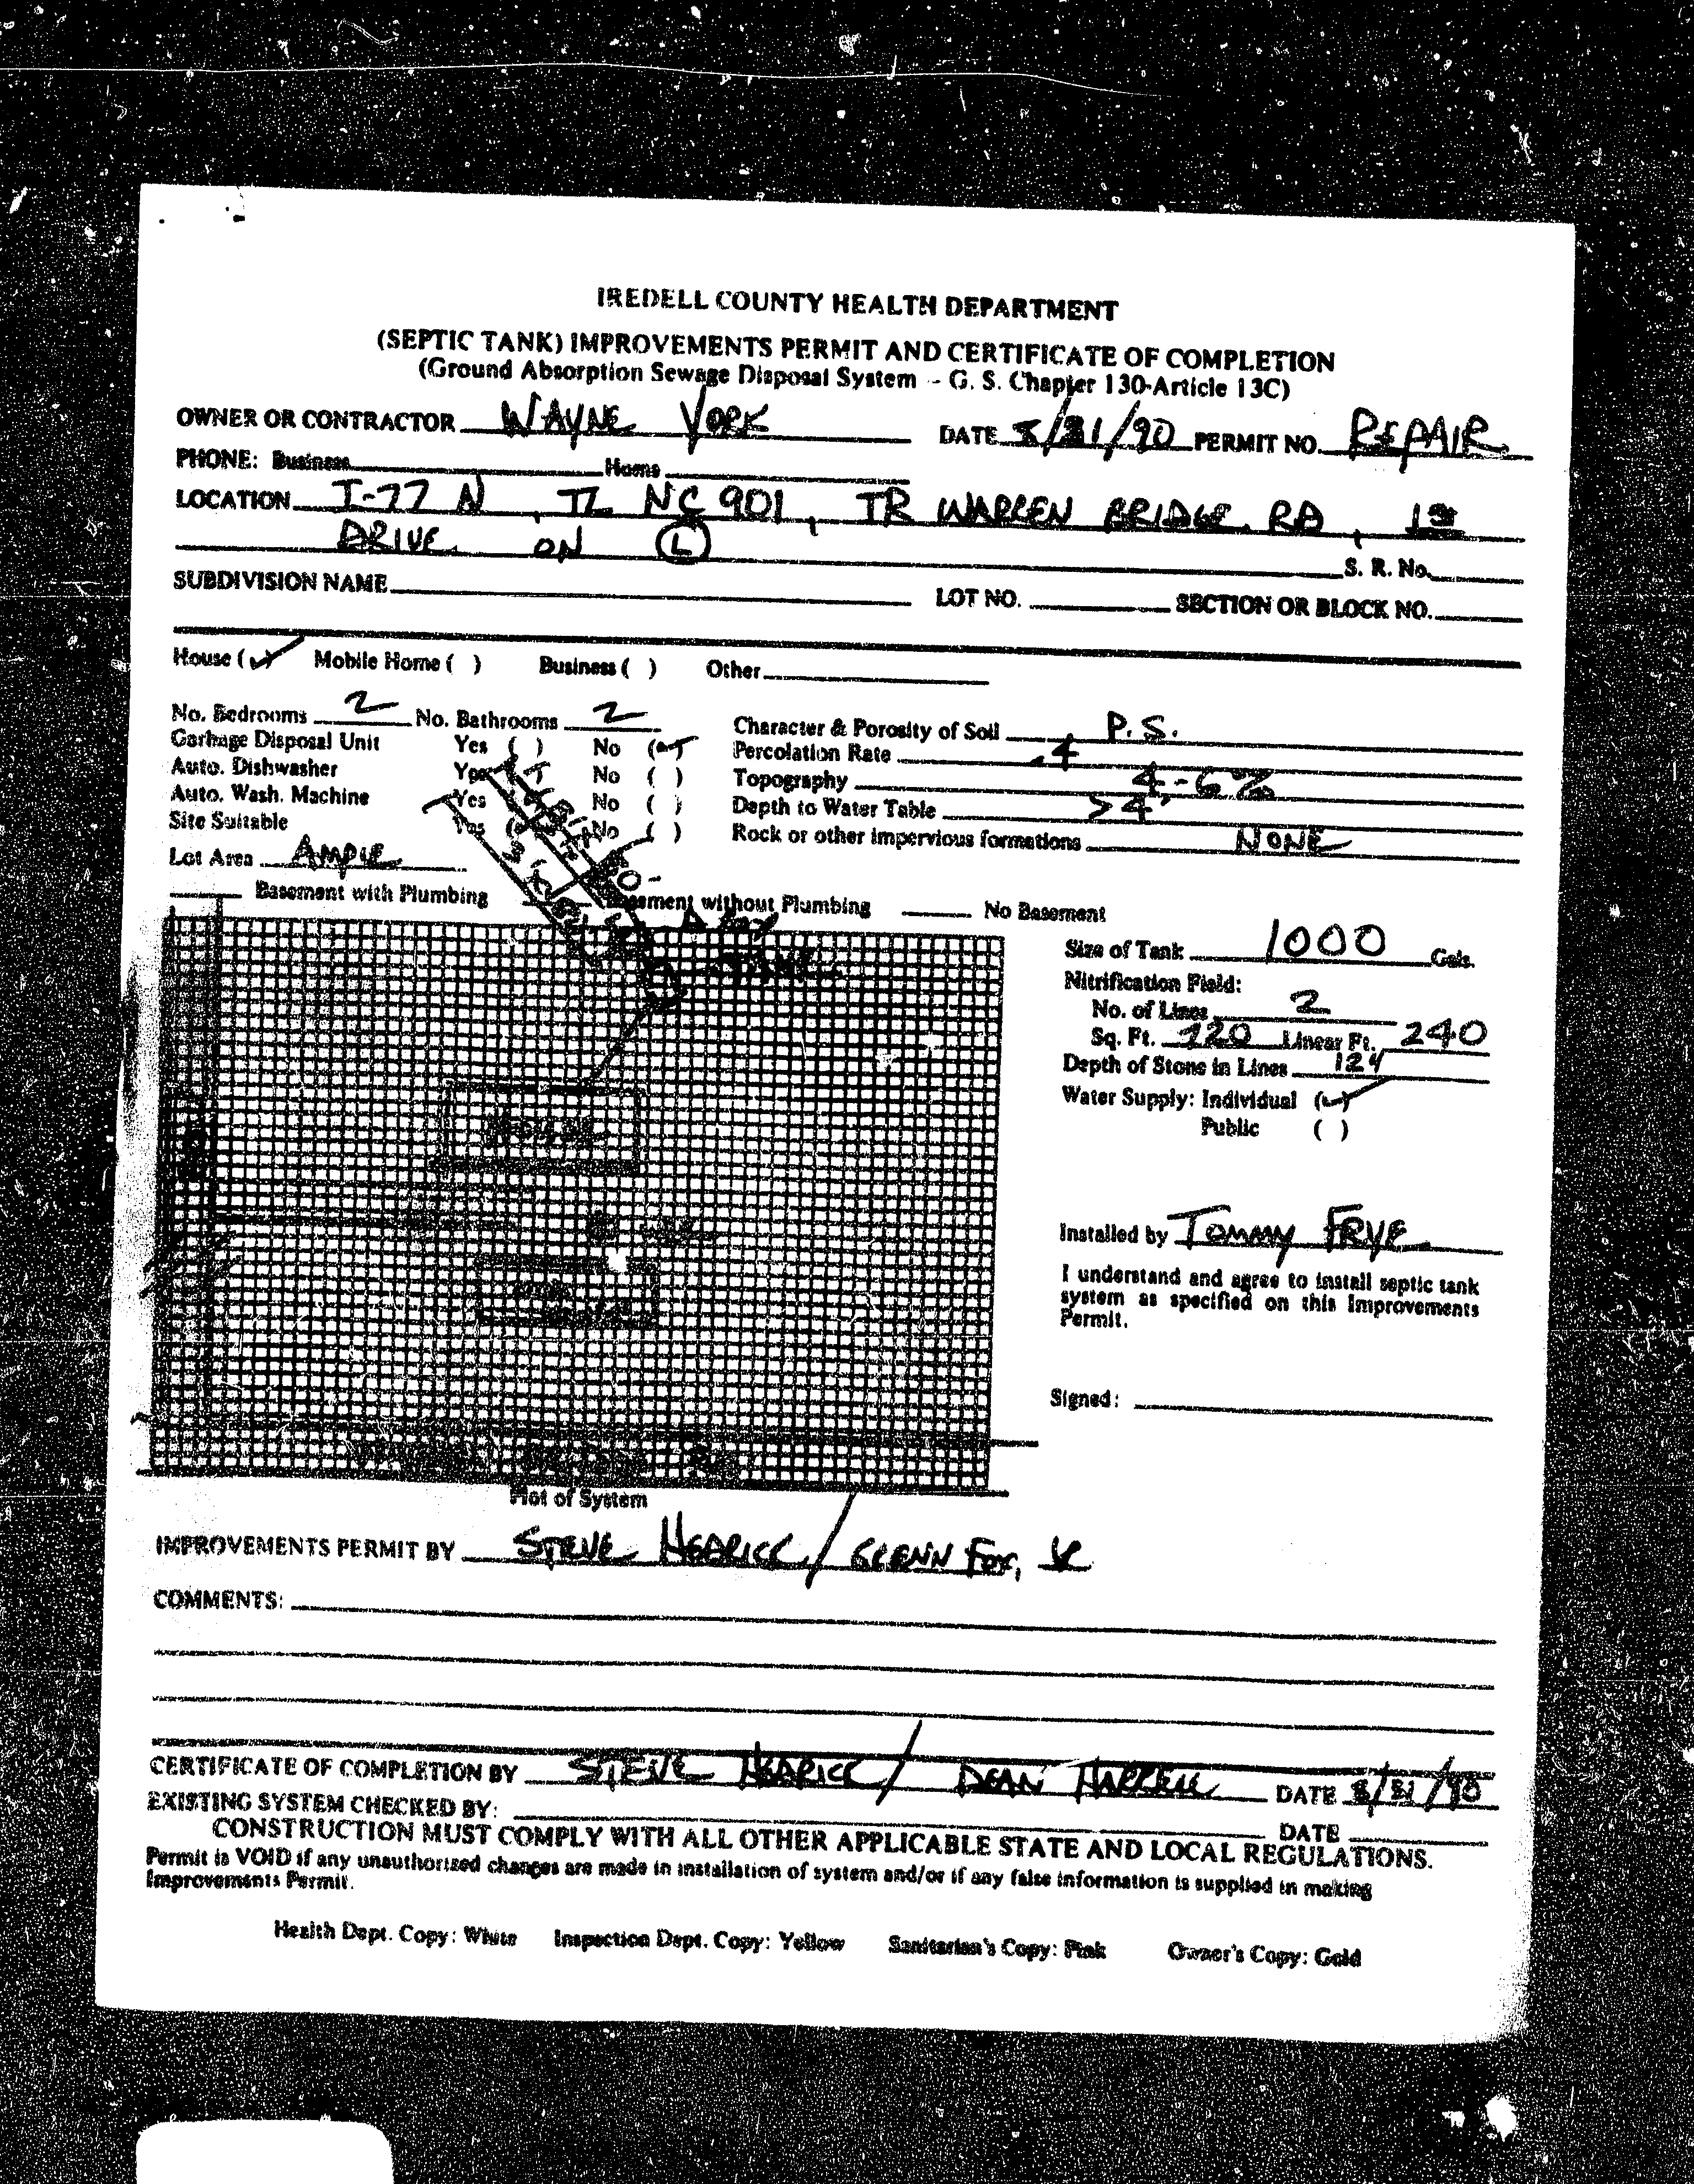 IREDELL COUNTY HEALTH DEPARTMENT
(SEPTIC TANK) IMPROVEMENTS PERMIT AND CERTIFICATE OF COMPLETION
(Ground Absorption Sewage Disposal System - G. S. Chapter 130-Article 13C)
OWNER OR CONTRACTOR WAYNE YORK DATE 8/31/90 PERMIT NO. REPAIR
PHONE: Business Home
LOCATION I-77 N, TL NC 901, TR WARREN BRIDGE RD, 1st
DRIVE ON (L)
S. R. No.
SUBDIVISION NAME LOT NO. SECTION OR BLOCK NO.
House (✓) Mobile Home ( ) Business ( ) Other
No. Bedrooms 2 No. Bathrooms 2 Character & Porosity of Soil P.S.
Garbage Disposal Unit Yes ( ) No (✓) Percolation Rate .4
Auto. Dishwasher Yes No ( ) Topography 4-6%
Auto. Wash. Machine Yes No ( ) Depth to Water Table >4'
Site Suitable Yes No ( ) Rock or other impervious formations NONE
Lot Area AMPLE
Basement with Plumbing Basement without Plumbing No Basement
Size of Tank 1000 Gals.
Nitrification Field:
No. of Lines 2
Sq. Ft. 720 Linear Ft. 240
Depth of Stone in Lines 12"
Water Supply: Individual (✓)
Public ( )
Installed by TOMMY FRYE
I understand and agree to install septic tank
system as specified on this Improvements
Permit.
Signed:
Plot of System
IMPROVEMENTS PERMIT BY STEVE HEDRICK / GLENN FOX, JR
COMMENTS:
CERTIFICATE OF COMPLETION BY STEVE HEDRICK / DEAN HARRELL DATE 8/31/90
EXISTING SYSTEM CHECKED BY: DATE
CONSTRUCTION MUST COMPLY WITH ALL OTHER APPLICABLE STATE AND LOCAL REGULATIONS.
Permit is VOID if any unauthorized changes are made in installation of system and/or if any false information is supplied in making
Improvements Permit.
Health Dept. Copy: White Inspection Dept. Copy: Yellow Sanitarian's Copy: Pink Owner's Copy: Gold